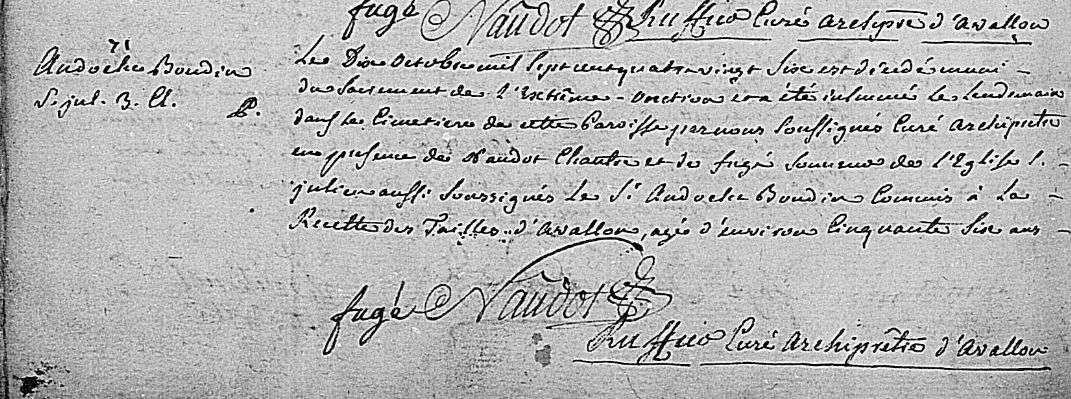 fugé Naudot Ruffier Curé archiptre d'avallon
Andoche Boudin
S. jul. 3. Cl.
P.
Le Dix octobre mil sept cent quatre vingt six est décédé muni -
du Sacrement de l'Extrême - onction et a été inhumé Le Lendemain
dans Le Cimetiere de cette Paroisse par nous soussignés Curé archiprêtre
en presence de Naudot Chantre et de fugé sonneur de l'Eglise S.
julien aussi soussignés Le Sr Andoche Boudin Commis à La -
Recette des Tailles d'avallon, agé d'environ Cinquante six ans -
fugé Naudot
Ruffier Curé archiprêtre d'avallon